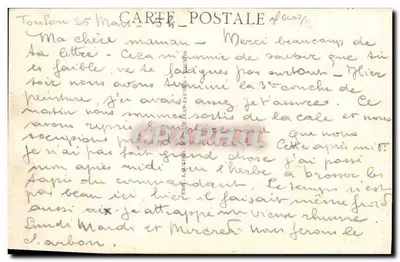 CARTE POSTALE
Toulon 25 Mars
Ma chère maman - Merci beaucoup de
ta lettre - Cela m'ennuie de savoir que tu
es faible, ne te fatigues pas surtout - Hier
soir nous avons terminé la 3e couche de
peinture, j'en avais assez je t'assure. Ce
matin nous sommes sortis de la cale et nous
avons repris que nous
occupions Cette après midi
je n'ai pas fait grand chose j'ai passé
mon après midi sur l'herbe à brosser les
tapis du commandant. Le temps n'est
pas beau ici, hier il faisait même froid
aussi ai-je attrappé un vieux rhume.
Lundi Mardi et Mercredi nous ferons le
charbon.
CPAPHIL